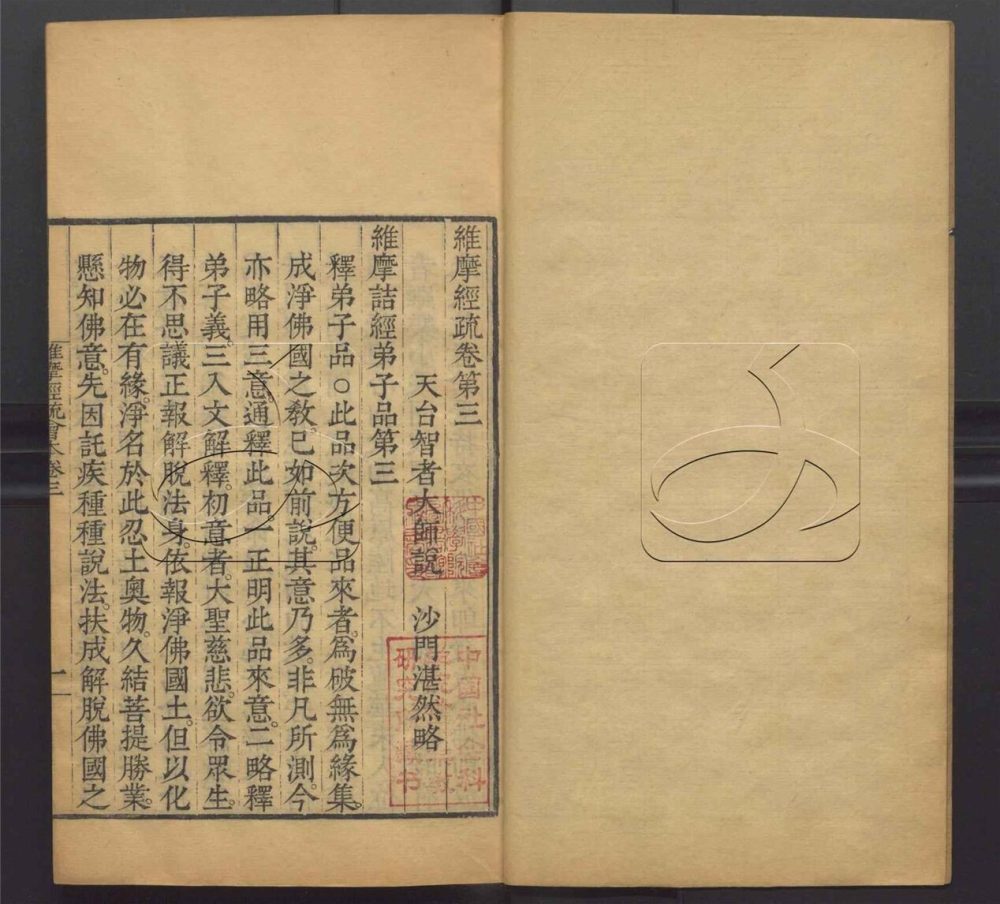 維摩經疏卷第三
天台智者大師說　沙門湛然略
維摩詰經弟子品第三
釋弟子品○此品次方便品來者。為破無為緣集。
成淨佛國之教。已如前說。其意乃多。非凡所測。今
亦略用三意。通釋此品。一正明此品來意。二略釋
弟子義。三入文解釋。初意者。大聖慈悲。欲令眾生。
得不思議正報解脫法身。依報淨佛國土。但以化
物必在有緣。淨名於此忍土奧物。久結菩提勝業。
懸知佛意。先因託疾種種說法。扶成解脫佛國之
維摩經疏會本卷三
一